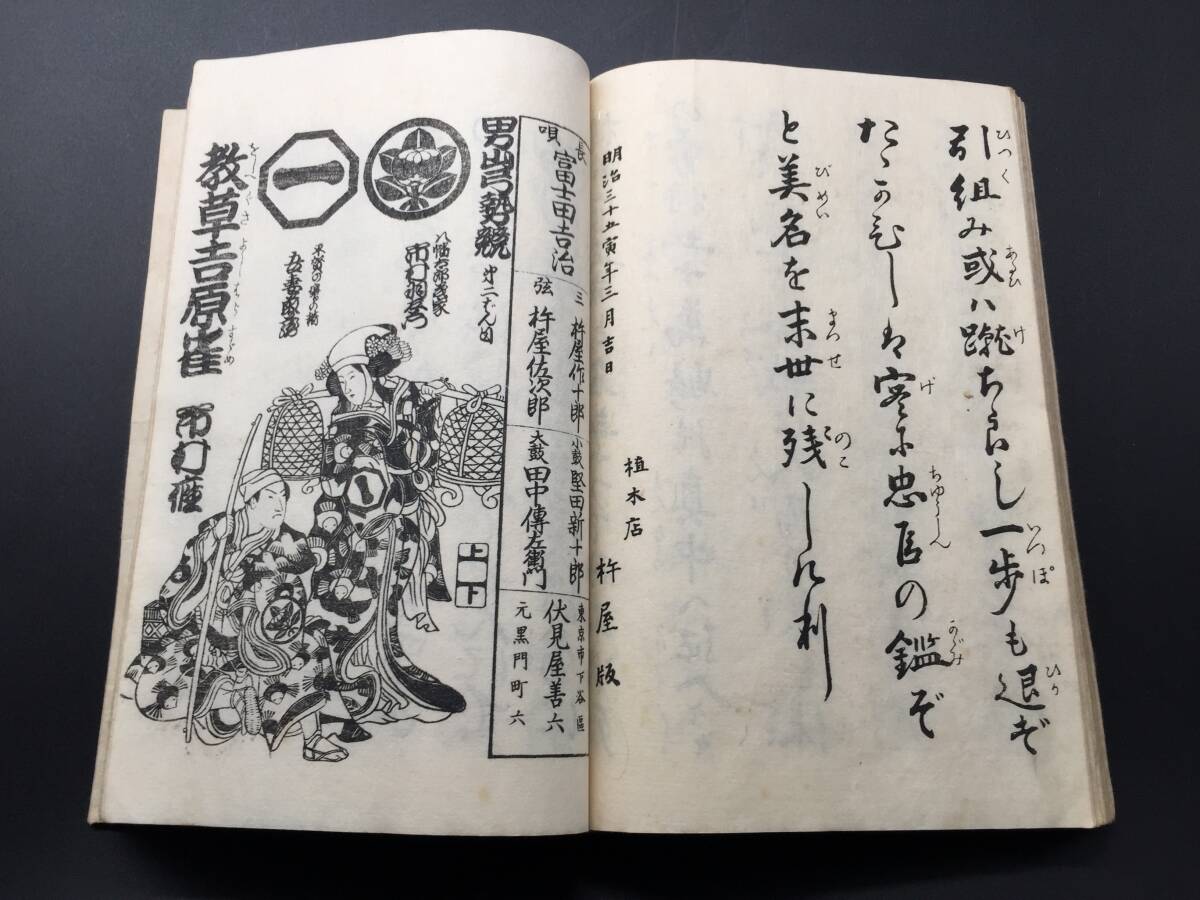 引組み或ハ蹴ちらし一歩も退ず
たゝかひしは実に忠臣の鑑ぞ
と美名を末世に残しけり
明治三十五寅年三月吉日
植木店 杵屋版
長唄 富士田吉治
三弦 杵屋作十郎
杵屋佐次郎
小鼓 堅田新十郎
大鼓 田中傳左衛門
東京市下谷區
伏見屋善六
元黒門町六
男山弓勢競 第二ばんめ
八幡太郎義家
市村羽左衛門
吾妻藤蔵
一
教草吉原雀 市村座
をしへぐさよしはらすゞめ
上
下